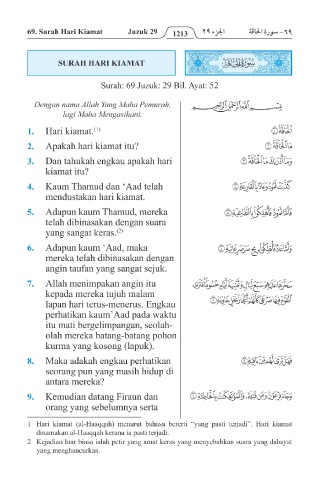 69. Surah Hari Kiamat Juzuk 29 1213 الجزء ٢٩ ٦٩- سورة الحاقة
SURAH HARI KIAMAT
Surah: 69 Juzuk: 29 Bil. Ayat: 52
Dengan nama Allah Yang Maha Pemurah,
lagi Maha Mengasihani.
بِسْمِ اللَّهِ الرَّحْمَٰنِ الرَّحِيمِ
1. Hari kiamat.(1)
الْحَاقَّةُ ١
2. Apakah hari kiamat itu?
مَا الْحَاقَّةُ ٢
3. Dan tahukah engkau apakah hari
kiamat itu?
وَمَا أَدْرَاكَ مَا الْحَاقَّةُ ٣
4. Kaum Thamud dan ‘Aad telah
mendustakan hari kiamat.
كَذَّبَتْ ثَمُودُ وَعَادٌ بِالْقَارِعَةِ ٤
5. Adapun kaum Thamud, mereka
telah dibinasakan dengan suara
yang sangat keras.(2)
فَأَمَّا ثَمُودُ فَأُهْلِكُوا بِالطَّاغِيَةِ ٥
6. Adapun kaum ‘Aad, maka
mereka telah dibinasakan dengan
angin taufan yang sangat sejuk.
وَأَمَّا عَادٌ فَأُهْلِكُوا بِرِيحٍ صَرْصَرٍ عَاتِيَةٍ ٦
7. Allah menimpakan angin itu
kepada mereka tujuh malam
lapan hari terus-menerus. Engkau
perhatikan kaum‘Aad pada waktu
itu mati bergelimpangan, seolah-
olah mereka batang-batang pohon
kurma yang kosong (lapuk).
سَخَّرَهَا عَلَيْهِمْ سَبْعَ لَيَالٍ وَثَمَانِيَةَ أَيَّامٍ حُسُومًا فَتَرَى
الْقَوْمَ فِيهَا صَرْعَىٰ كَأَنَّهُمْ أَعْجَازُ نَخْلٍ خَاوِيَةٍ ٧
8. Maka adakah engkau perhatikan
seorang pun yang masih hidup di
antara mereka?
فَهَلْ تَرَىٰ لَهُم مِّن بَاقِيَةٍ ٨
9. Kemudian datang Firaun dan
orang yang sebelumnya serta
وَجَاءَ فِرْعَوْنُ وَمَن قَبْلَهُ وَالْمُؤْتَفِكَاتُ بِالْخَاطِئَةِ ٩
1 Hari kiamat (al-Haaqqah) menurut bahasa bererti “yang pasti terjadi”. Hari kiamat
dinamakan al-Haaqqah kerana ia pasti terjadi.
2 Kejadian luar biasa ialah petir yang amat keras yang menyebabkan suara yang dahsyat
yang menghancurkan.